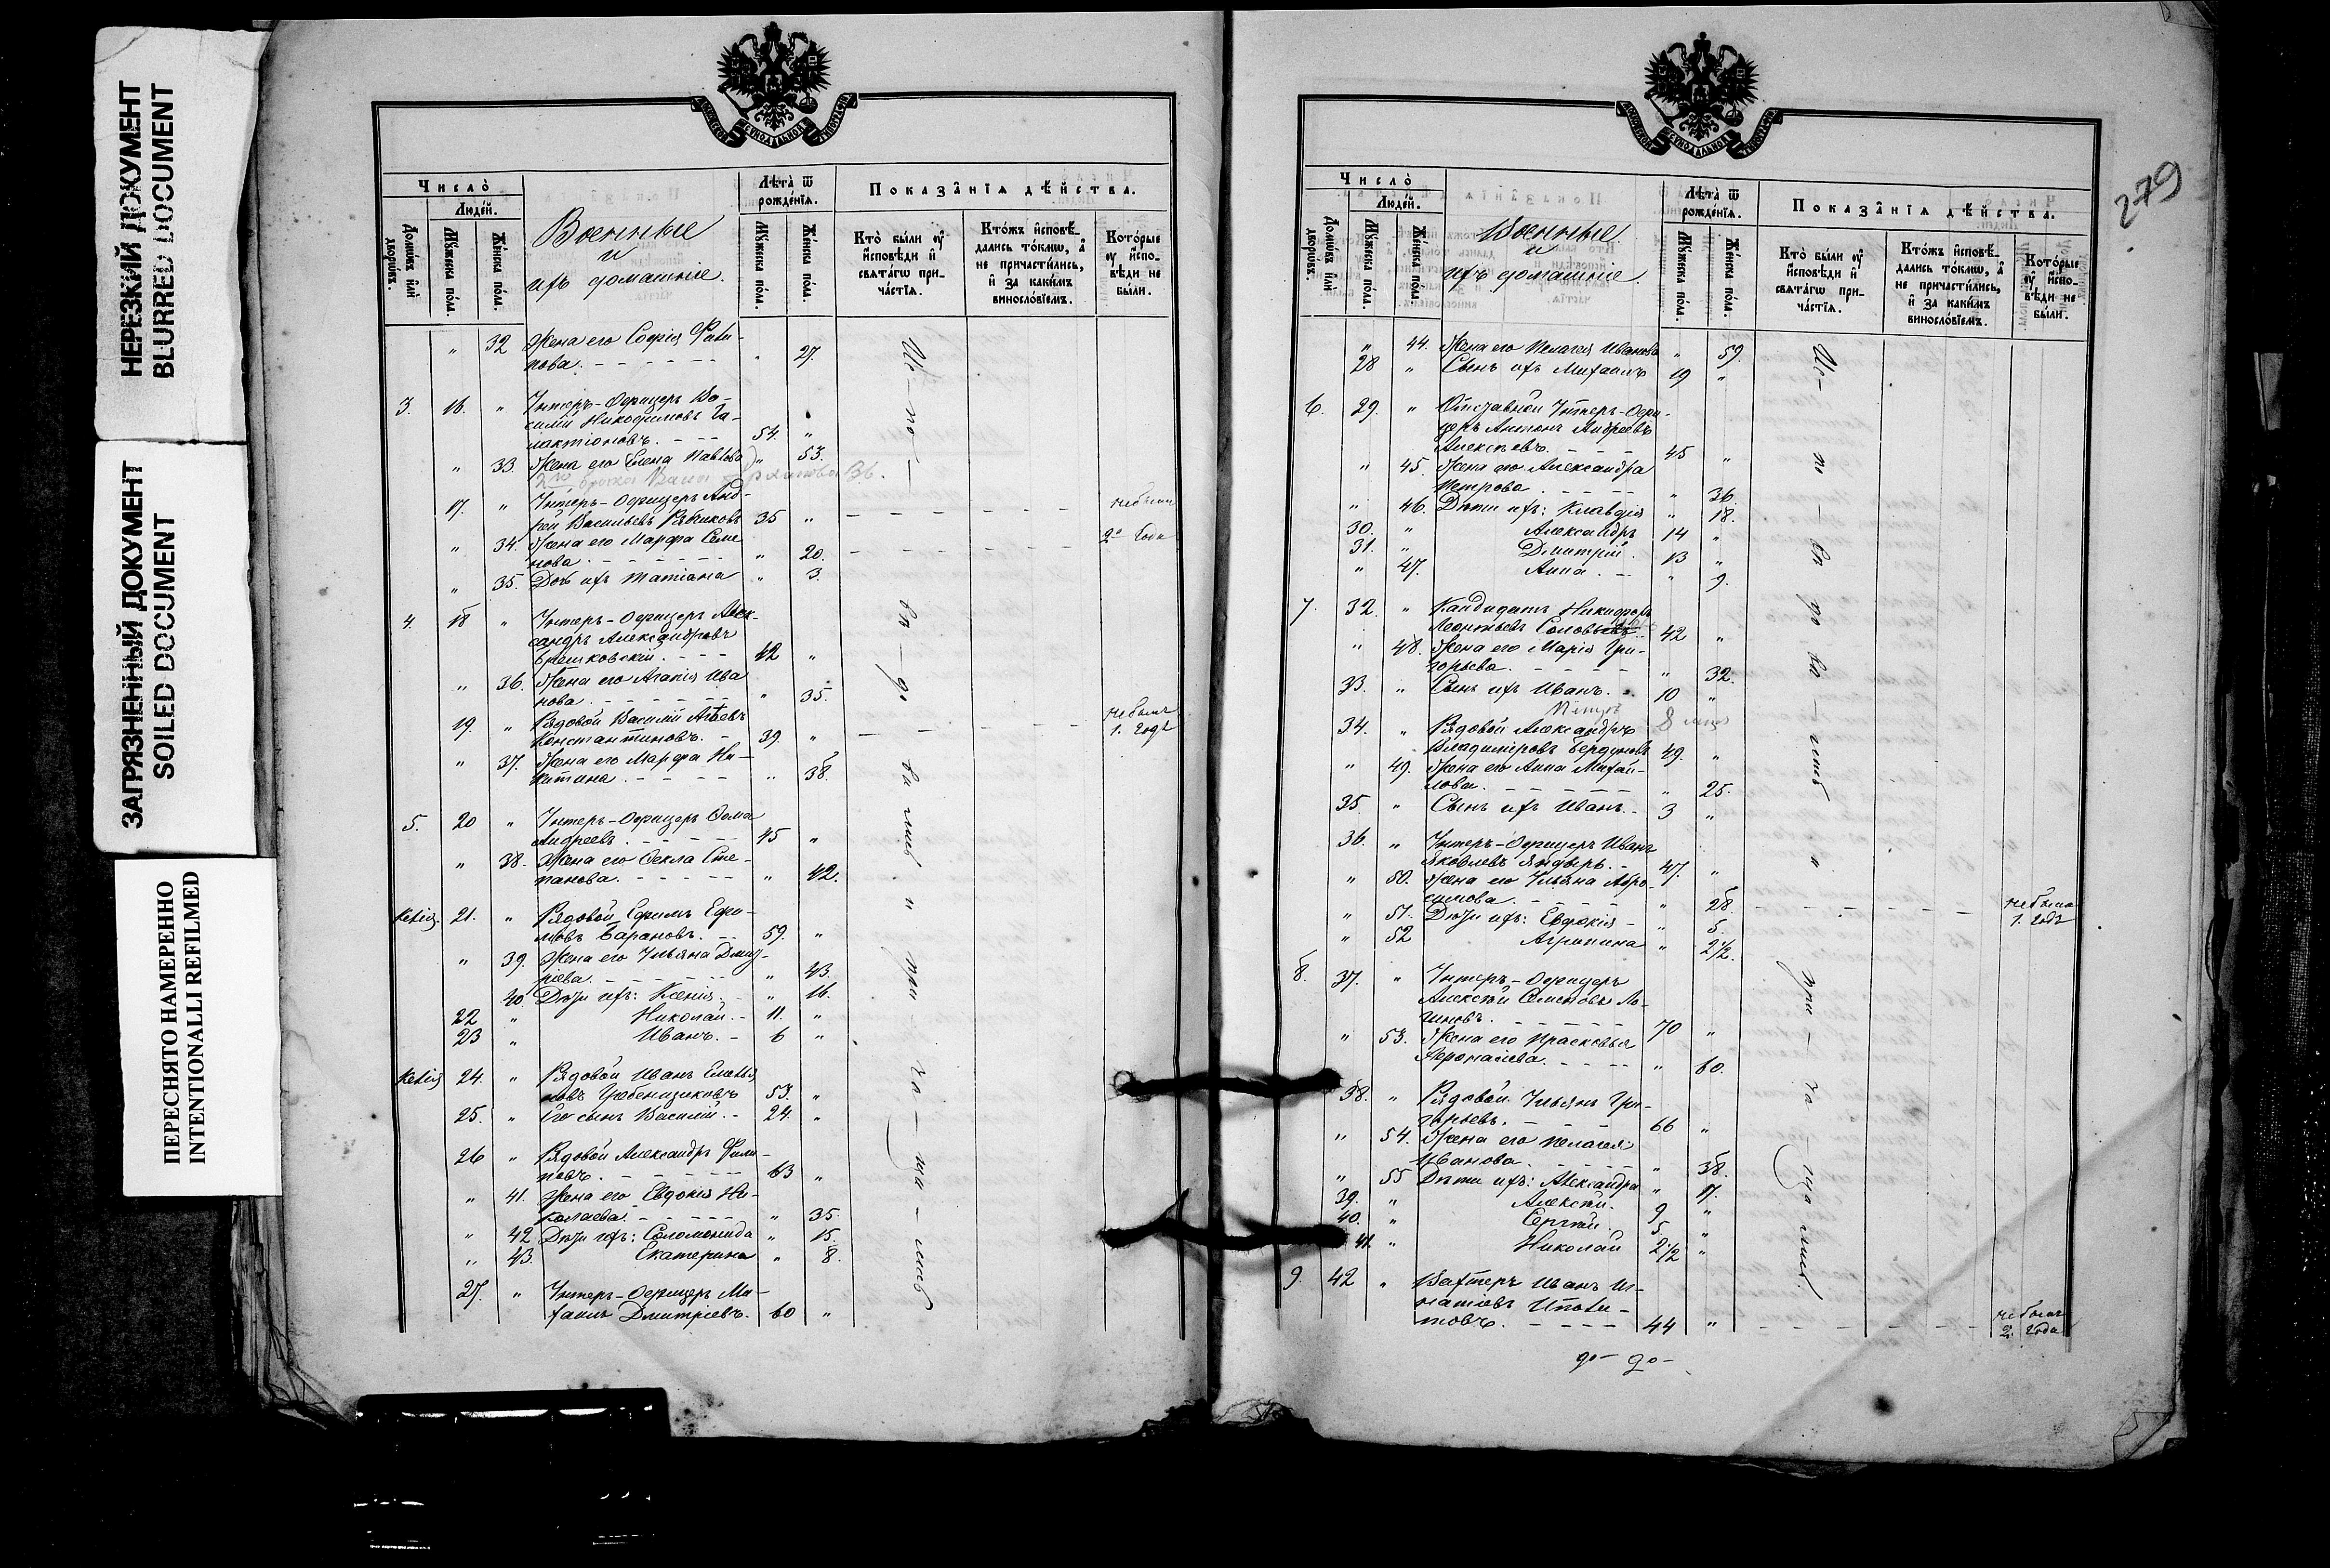 НЕРЕЗКИЙ ДОКУМЕНТ
BLURRED DOCUMENT
ЗАГРЯЗНЕННЫЙ ДОКУМЕНТ
SOILED DOCUMENT
ПЕРЕСНЯТО НАМЕРЕННО
INTENTIONALLI REFILMED
Число̀
Людей.
Лѣта̀ ѿ рожденїѧ.
Показанїѧ дѣйства.
Домѡвъ и҆лѝ дворѡвъ.
Мꙋжеска пола.
Женска пола.
Военные
и
ихъ домашніе.
Мꙋжеска пола.
Женска пола.
Кто̀ были ᲂу҆ и҆сповѣди и҆ свѧтагѡ причастїѧ.
Ктожъ и҆сповѣдались токмѡ, а҆ не причастились, и҆ за какимъ винословїемъ.
Которые ᲂу҆ и҆сповѣди не были.
" 32 Жена его Софія Фили-
пова. " 27.
3. 16. " Унтеръ-Офицеръ Ва-
силій Никодимовъ Га-
лактіоновъ. 54. "
" 33. Жена его Елена Павлова " 53.
17. " Унтеръ-Офицеръ Анд-
рей Васильевъ Рябчиковъ 35 " не были
" 34. Жена его Марфа Семе
нова. " 20. 2 года
" 35. Дочь ихъ Татіана " 3.
4. 18 " Унтеръ-Офицеръ Алек-
сандръ Александровъ
Брешковскій. 42 "
" 36. Жена его Агапія Ива
нова. " 35.
19. " Рядовой Василій
Константиновъ. 39. " не былъ 1. годъ
" 37. Жена его Марфа Ни-
китина. " 38.
5. 20 " Унтеръ-Офицеръ Ѳома
Андреевъ. 45 "
" 38. Жена его Ѳекла Сте-
панова. " 42.
Келія. 21. " Рядовой Ефимъ Ефи-
мовъ Барановъ. 59. "
" 39. Жена его Ульяна Дмит-
ріева. " 43.
40. Дѣти ихъ: Ксенія " 16.
22 " Николай. 11. "
23 " Иванъ. 6 "
Келія 24. " Рядовой Иванъ Емелья
новъ Гребенщиковъ 53. "
25. " Его сынъ Василій. 24. "
26 " Рядовой Александръ Фили-
повъ. 63 "
" 41. Жена его Евдокія Ни-
колаева. " 35.
" 42 Дѣти ихъ: Соломонида " 15.
" 43. Екатерина " 8.
27. " Унтеръ-Офицеръ Ми-
хаилъ Дмитріевъ. 60 "
Ис-по-вѣ-до-ва-лись и при-ча-ща-лись
279
Число̀
Людей.
Лѣта̀ ѿ рожденїѧ.
Показанїѧ дѣйства.
Домѡвъ и҆лѝ дворѡвъ.
Мꙋжеска пола.
Женска пола.
Военные
и
ихъ домашніе.
Мꙋжеска пола.
Женска пола.
Кто̀ были ᲂу҆ и҆сповѣди и҆ свѧтагѡ причастїѧ.
Ктожъ и҆сповѣдались токмѡ, а҆ не причастились, и҆ за какимъ винословїемъ.
Которые ᲂу҆ и҆сповѣди не были.
" 44. Жена его Пелагея Иванова " 59.
28 " Сынъ ихъ Михаилъ 19 "
6. 29. " Отставной Унтеръ-Офи-
церъ Антонъ Андреевъ
Алексѣевъ. 45 "
" 45. Жена его Александра
Петрова. " 36.
" 46. Дѣти ихъ: Клавдія " 18.
30. " Александръ 14 "
31. " Дмитрій. 13 "
" 47. Анна. " 9.
7. 32. " Кандидатъ Никифоръ
Леонтьевъ Соловьевъ. 42 "
" 48. Жена его Марія Гри-
горьева. " 32.
33. " Сынъ ихъ Иванъ. 10 "
Петръ 8 лѣтъ
34. " Рядовой Александръ
Владиміровъ Бердуновъ 49. "
" 49. Жена его Анна Михай-
лова. " 25.
35. " Сынъ ихъ Иванъ. 3 "
36. " Унтеръ-Офицеръ Иванъ
Яковлевъ 47. "
" 50. Жена его Ульяна Абро-
симова. " 28. не была 1. годъ
" 51. Дѣти ихъ: Евдокія " 5.
" 52 Агрипина " 2½.
8. 37. " Унтеръ-Офицеръ
Алексѣй Семеновъ Ло-
гиновъ. 70 "
" 53. Жена его Прасковья
" 60.
38. " Рядовой Ульянъ Гри-
горьевъ. 66 "
" 54. Жена его Пелагея
Иванова. " 38.
" 55 Дѣти ихъ: Александра " 17.
39. " Алексѣй. 9 "
40. " Сергѣй. 5. "
41. " Николай 2½ "
9. 42 " Вахтеръ Иванъ Иг-
натіевъ Иполи-
товъ. 44 " не былъ 2. года
Ис-по-вѣ-до-ва-лись и при-ча-ща-лись.